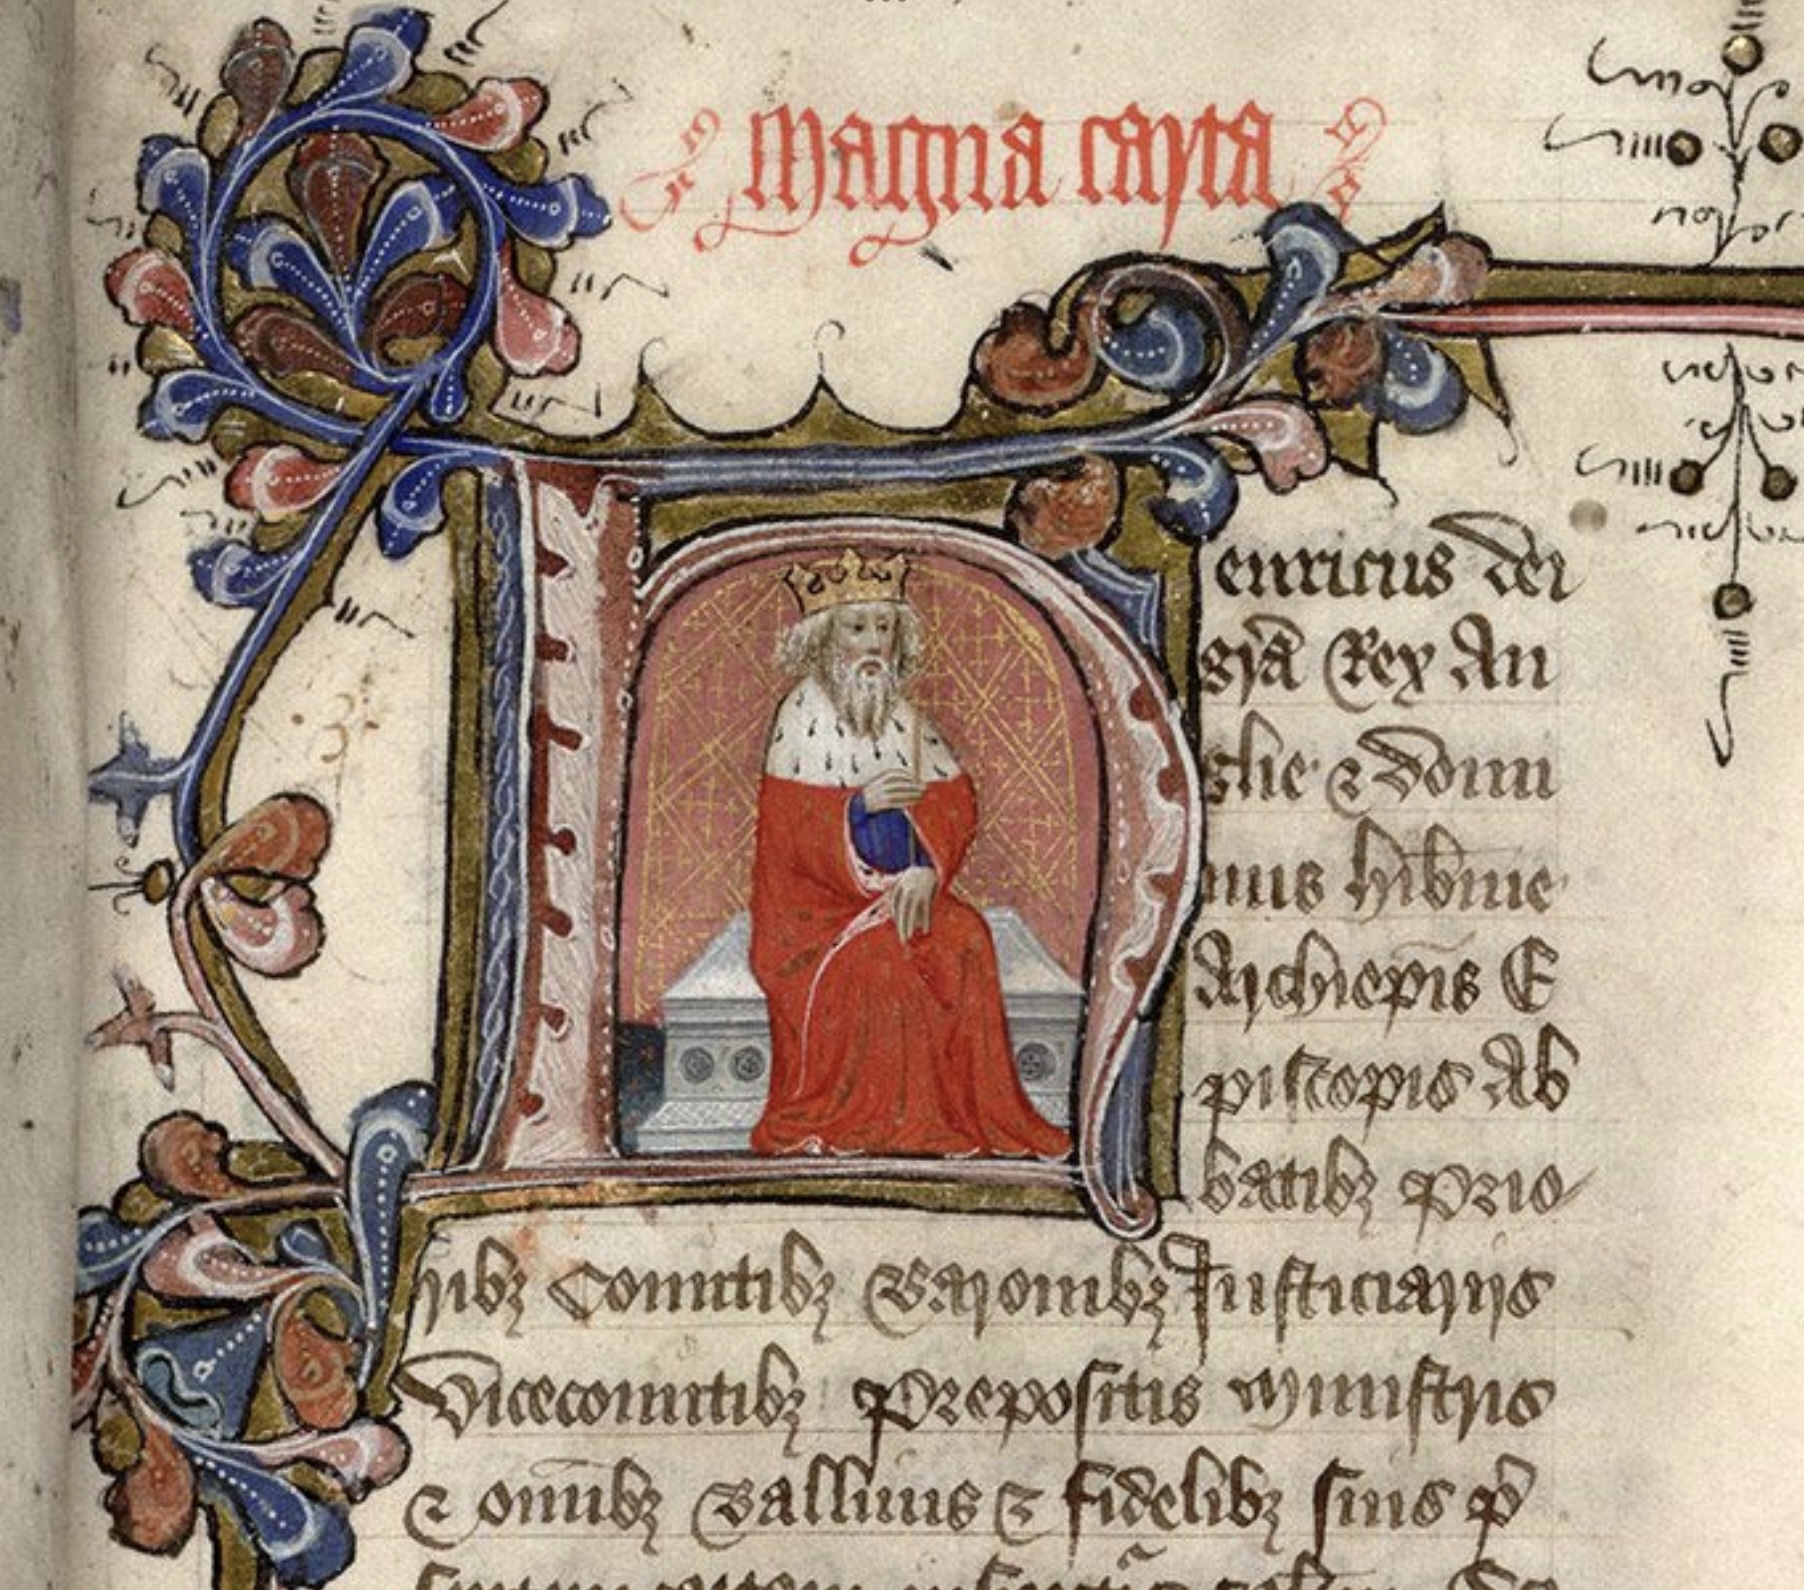 Magna carta
Henricus dei
gr̄a Rex An
glie ⁊ domi
nus hib̄nie
Archiep̄is E
piscopis Ab
batibꝫ prio
ribꝫ Comitibꝫ Baronibꝫ Justiciariis
vicecomitibꝫ prepositis ministris
⁊ om̄ibꝫ Balliuis ⁊ fidelibꝫ suis p̄